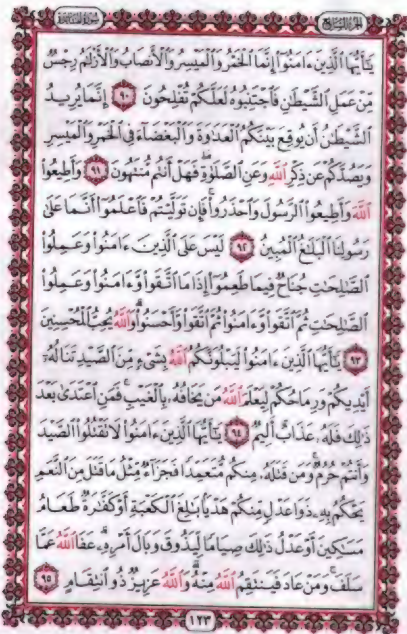 سورة المائدة
الجزء السابع
يَٰٓأَيُّهَا ٱلَّذِينَ ءَامَنُوٓا۟ إِنَّمَا ٱلْخَمْرُ وَٱلْمَيْسِرُ وَٱلْأَنصَابُ وَٱلْأَزْلَٰمُ رِجْسٌ
مِّنْ عَمَلِ ٱلشَّيْطَٰنِ فَٱجْتَنِبُوهُ لَعَلَّكُمْ تُفْلِحُونَ ٩٠ إِنَّمَا يُرِيدُ
ٱلشَّيْطَٰنُ أَن يُوقِعَ بَيْنَكُمُ ٱلْعَدَٰوَةَ وَٱلْبَغْضَآءَ فِى ٱلْخَمْرِ وَٱلْمَيْسِرِ
وَيَصُدَّكُمْ عَن ذِكْرِ ٱللَّهِ وَعَنِ ٱلصَّلَوٰةِ ۖ فَهَلْ أَنتُم مُّنتَهُونَ ٩١ وَأَطِيعُوا۟
ٱللَّهَ وَأَطِيعُوا۟ ٱلرَّسُولَ وَٱحْذَرُوا۟ ۚ فَإِن تَوَلَّيْتُمْ فَٱعْلَمُوٓا۟ أَنَّمَا عَلَىٰ
رَسُولِنَا ٱلْبَلَٰغُ ٱلْمُبِينُ ٩٢ لَيْسَ عَلَى ٱلَّذِينَ ءَامَنُوا۟ وَعَمِلُوا۟
ٱلصَّٰلِحَٰتِ جُنَاحٌ فِيمَا طَعِمُوٓا۟ إِذَا مَا ٱتَّقَوا۟ وَّءَامَنُوا۟ وَعَمِلُوا۟
ٱلصَّٰلِحَٰتِ ثُمَّ ٱتَّقَوا۟ وَّءَامَنُوا۟ ثُمَّ ٱتَّقَوا۟ وَّأَحْسَنُوا۟ ۗ وَٱللَّهُ يُحِبُّ ٱلْمُحْسِنِينَ
٩٣ يَٰٓأَيُّهَا ٱلَّذِينَ ءَامَنُوا۟ لَيَبْلُوَنَّكُمُ ٱللَّهُ بِشَىْءٍ مِّنَ ٱلصَّيْدِ تَنَالُهُۥٓ
أَيْدِيكُمْ وَرِمَاحُكُمْ لِيَعْلَمَ ٱللَّهُ مَن يَخَافُهُۥ بِٱلْغَيْبِ ۚ فَمَنِ ٱعْتَدَىٰ بَعْدَ
ذَٰلِكَ فَلَهُۥ عَذَابٌ أَلِيمٌ ٩٤ يَٰٓأَيُّهَا ٱلَّذِينَ ءَامَنُوا۟ لَا تَقْتُلُوا۟ ٱلصَّيْدَ
وَأَنتُمْ حُرُمٌ ۚ وَمَن قَتَلَهُۥ مِنكُم مُّتَعَمِّدًا فَجَزَآءٌ مِّثْلُ مَا قَتَلَ مِنَ ٱلنَّعَمِ
يَحْكُمُ بِهِۦ ذَوَا عَدْلٍ مِّنكُمْ هَدْيًۢا بَٰلِغَ ٱلْكَعْبَةِ أَوْ كَفَّٰرَةٌ طَعَامُ
مَسَٰكِينَ أَوْ عَدْلُ ذَٰلِكَ صِيَامًا لِّيَذُوقَ وَبَالَ أَمْرِهِۦ ۗ عَفَا ٱللَّهُ عَمَّا
سَلَفَ ۚ وَمَنْ عَادَ فَيَنتَقِمُ ٱللَّهُ مِنْهُ ۗ وَٱللَّهُ عَزِيزٌ ذُو ٱنتِقَامٍ ٩٥
١٢٣